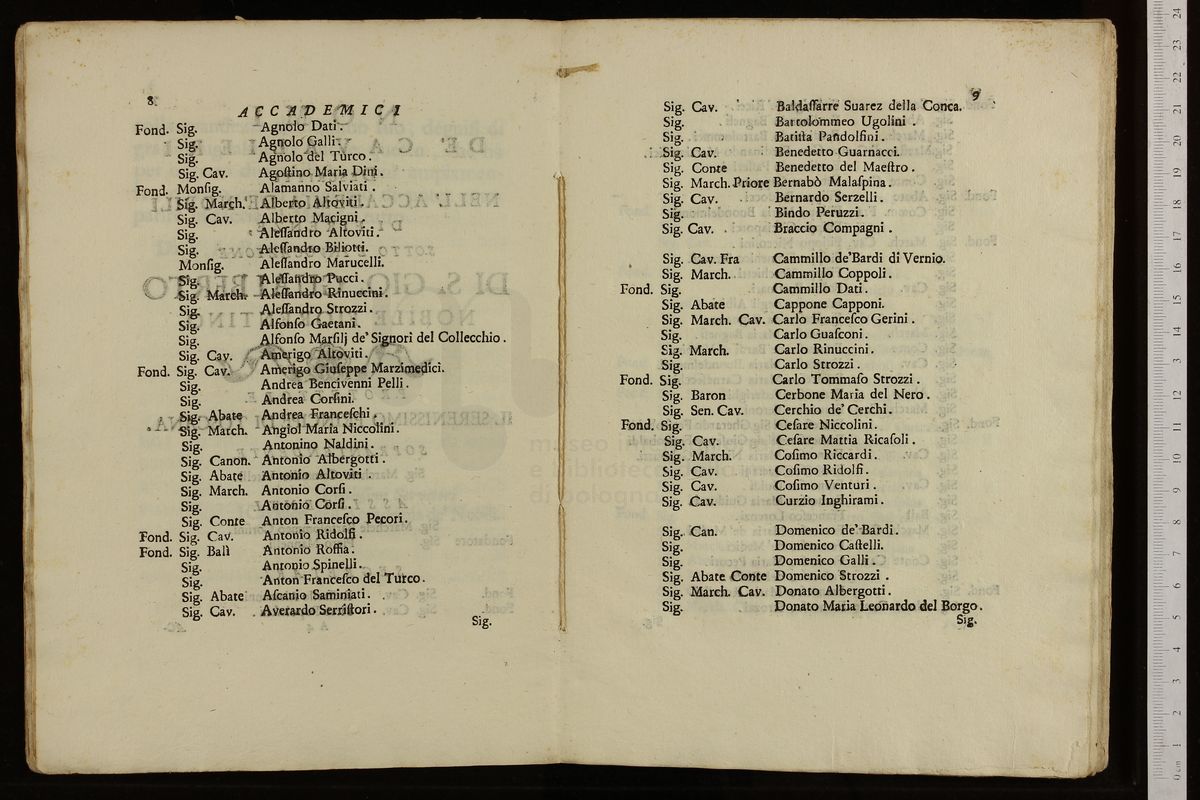 8
ACCADEMICI
Fond. Sig. Agnolo Dati.
Sig. Agnolo Galli.
Sig. Agnolo del Turco.
Sig. Cav. Agoſtino Maria Dini.
Fond. Monſig. Alamanno Salviati.
Sig. March. Alberto Altoviti.
Sig. Cav. Alberto Macigni.
Sig. Aleſſandro Altoviti.
Sig. Aleſſandro Biliotti.
Monſig. Aleſſandro Marucelli.
Sig. Aleſſandro Pucci.
Sig. March. Aleſſandro Rinuccini.
Sig. Aleſſandro Strozzi.
Sig. Alfonſo Gaetani.
Sig. Alfonſo Marſilj de' Signori del Collecchio.
Sig. Cav. Amerigo Altoviti.
Fond. Sig. Cav. Amerigo Giuſeppe Marzimedici.
Sig. Andrea Bencivenni Pelli.
Sig. Andrea Corſini.
Sig. Abate Andrea Franceſchi.
Sig. March. Angiol Maria Niccolini.
Sig. Antonino Naldini.
Sig. Canon. Antonio Albergotti.
Sig. Abate Antonio Altoviti.
Sig. March. Antonio Corſi.
Sig. Antonio Corſi.
Sig. Conte Anton Franceſco Pecori.
Fond. Sig. Cav. Antonio Ridolfi.
Fond. Sig. Balì Antonio Roffia.
Sig. Antonio Spinelli.
Sig. Anton Franceſco del Turco.
Sig. Abate Aſcanio Saminiati.
Sig. Cav. Averardo Serriſtori.
Sig.
9
Sig. Cav. Baldaſſarre Suarez della Conca.
Sig. Bartolommeo Ugolini.
Sig. Batiſta Pandolfini.
Sig. Cav. Benedetto Guarnacci.
Sig. Conte Benedetto del Maeſtro.
Sig. March. Priore Bernabò Malaſpina.
Sig. Cav. Bernardo Serzelli.
Sig. Bindo Peruzzi.
Sig. Cav. Braccio Compagni.
Sig. Cav. Fra Cammillo de'Bardi di Vernio.
Sig. March. Cammillo Coppoli.
Fond. Sig. Cammillo Dati.
Sig. Abate Cappone Capponi.
Sig. March. Cav. Carlo Franceſco Gerini.
Sig. Carlo Guaſconi.
Sig. March. Carlo Rinuccini.
Sig. Carlo Strozzi.
Fond. Sig. Carlo Tommaſo Strozzi.
Sig. Baron Cerbone Maria del Nero.
Sig. Sen. Cav. Cerchio de' Cerchi.
Fond. Sig. Ceſare Niccolini.
Sig. Cav. Ceſare Mattia Ricaſoli.
Sig. March. Coſimo Riccardi.
Sig. Cav. Coſimo Ridolfi.
Sig. Cav. Coſimo Venturi.
Sig. Cav. Curzio Inghirami.
Sig. Can. Domenico de' Bardi.
Sig. Domenico Caſtelli.
Sig. Domenico Galli.
Sig. Abate Conte Domenico Strozzi.
Sig. March. Cav. Donato Albergotti.
Sig. Donato Maria Leonardo del Borgo.
Sig.